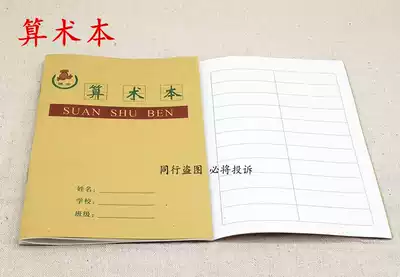 算术本
算术本
SUAN SHU BEN
同行盗图 必将投诉
姓名：
学校：
班级：